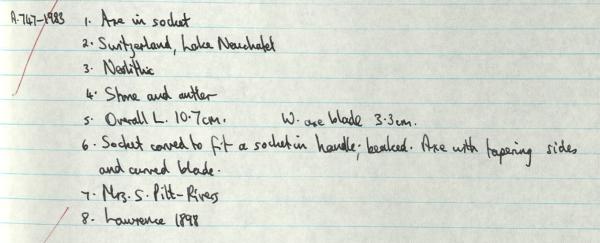 A.747-1983 1. Axe in socket
2. Switzerland, Lake Neuchatel
3. Neolithic
4. Stone and antler
5. Overall L. 10.7cm. W. axe blade 3.3cm.
6. Socket carved to fit a socket in handle; beaked. Axe with tapering sides
and curved blade.
7. Mrs. S. Pitt-Rivers
8. Lawrence 1898